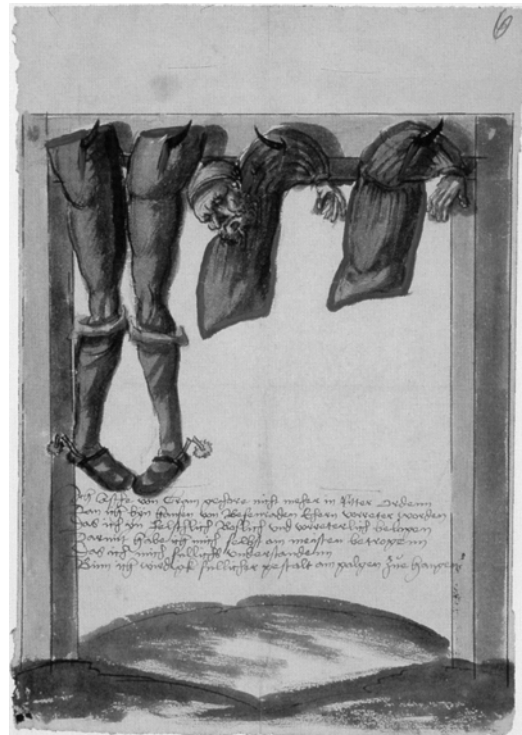 6
Ich Asche von Cram gehore nicht meher in Ritter Ordenn
Dan ich byn Hansen von Ehern vorreter worden
Das ich yn felschlich boslich und vorreterlich
Darmit habe ich mich selbst am meisten betrogenn
Das ich mich sullichs understandenn
Binn ich wirdigk sullicher gestalt am galgen zue hangen